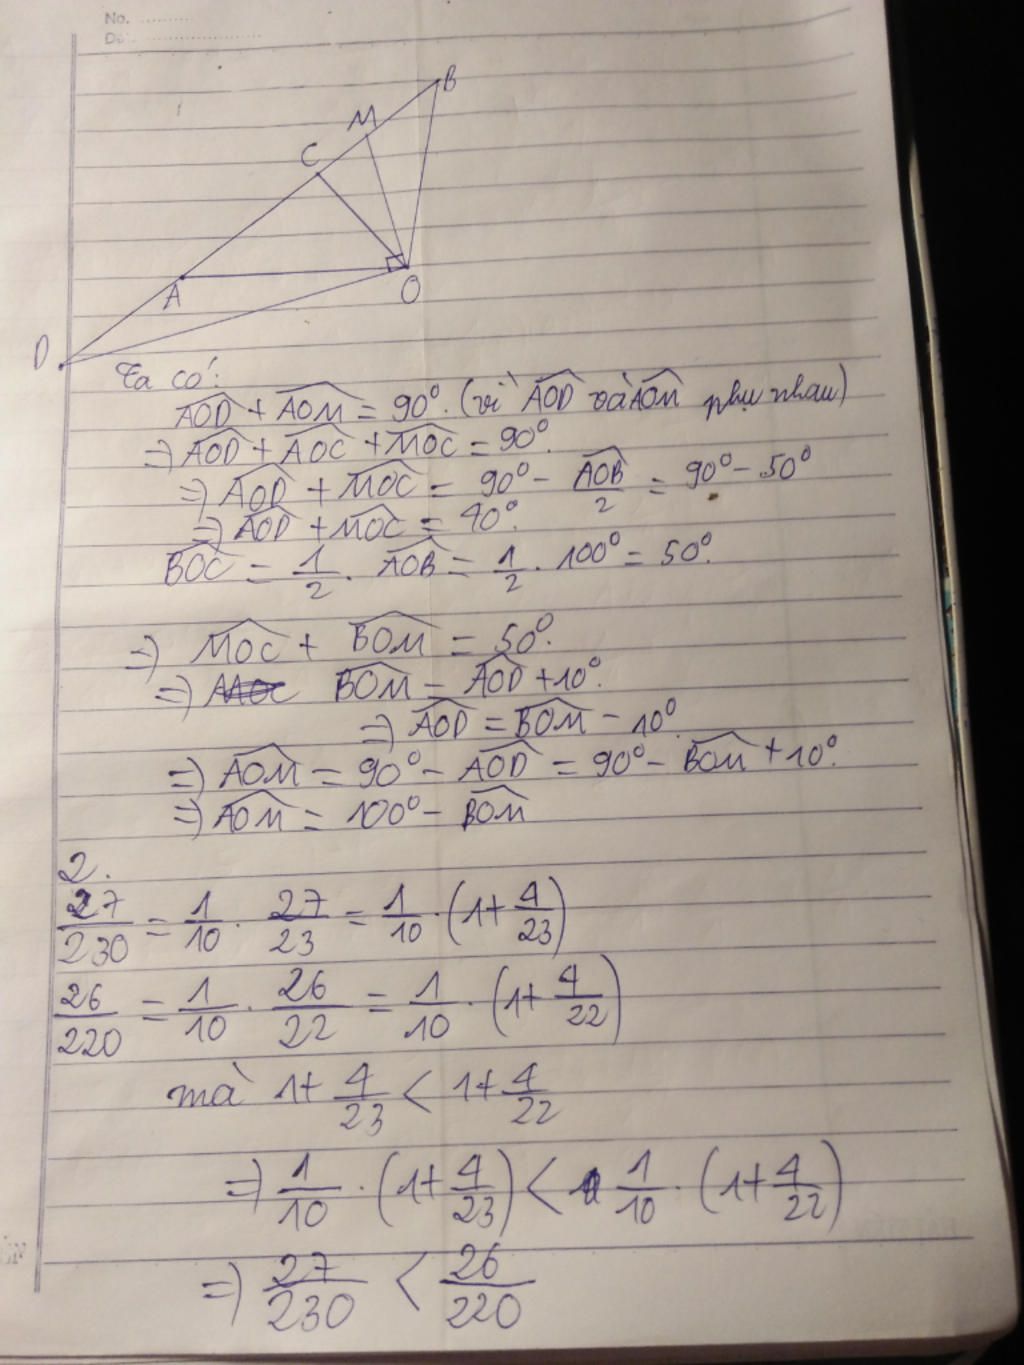 No.
B
M
C
A
O
D
Ta có:
AOD + AOM = 90°. (vì AOD và AOM phụ nhau)
=> AOD + AOC + MOC = 90°.
=> AOD + MOC = 90° - AOB/2 = 90° - 50°
=> AOD + MOC = 40°.
BOC = 1/2 . AOB = 1/2 . 100° = 50°.
=> MOC + BOM = 50°.
=> BOM = AOD + 10°.
=> AOD = BOM - 10°.
=> AOM = 90° - AOD = 90° - BOM + 10°.
=> AOM = 100° - BOM
2.
27/230 = 1/10 . 27/23 = 1/10 . (1 + 4/23)
26/220 = 1/10 . 26/22 = 1/10 . (1 + 4/22)
mà 1 + 4/23 < 1 + 4/22
=> 1/10 . (1 + 4/23) < 1/10 . (1 + 4/22)
=> 27/230 < 26/220